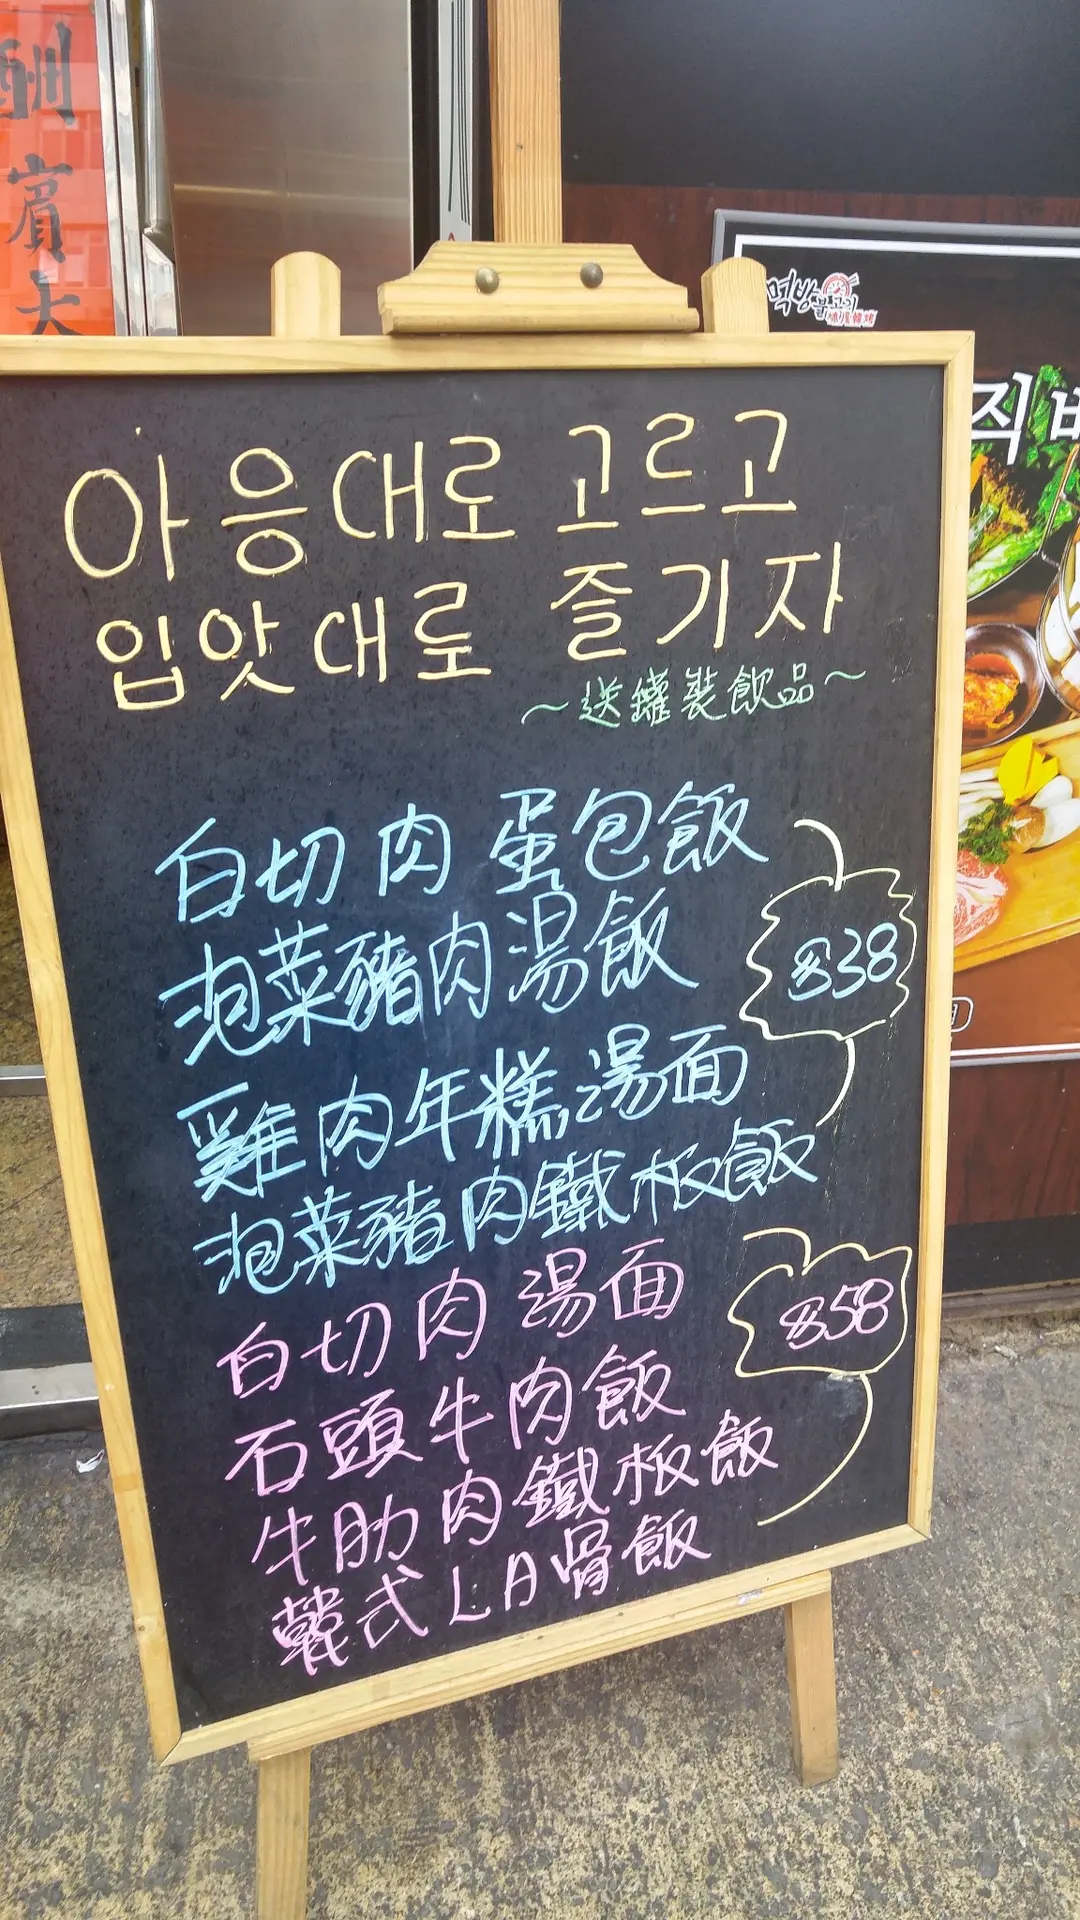 酬賓大
먹방불고기
직
아응대로 고르고
입맛대로 즐기자
~送罐裝飲品~
白切肉蛋包飯
泡菜豬肉湯飯
$38
雞肉年糕湯面
泡菜豬肉鐵板飯
白切肉湯面
$58
石頭牛肉飯
牛肋肉鐵板飯
韓式LA骨飯